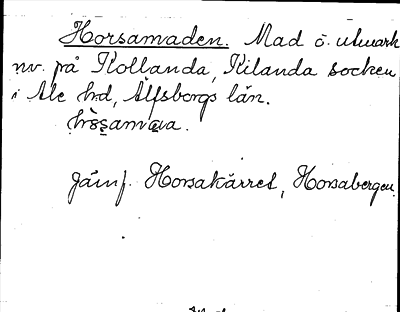 Horsamaden. Mad ö. utmark
nv. på Kollanda, Kilanda socken
i Ale hd, Älfsborgs län.
Jämf. Horsakärret, Horsabergen.